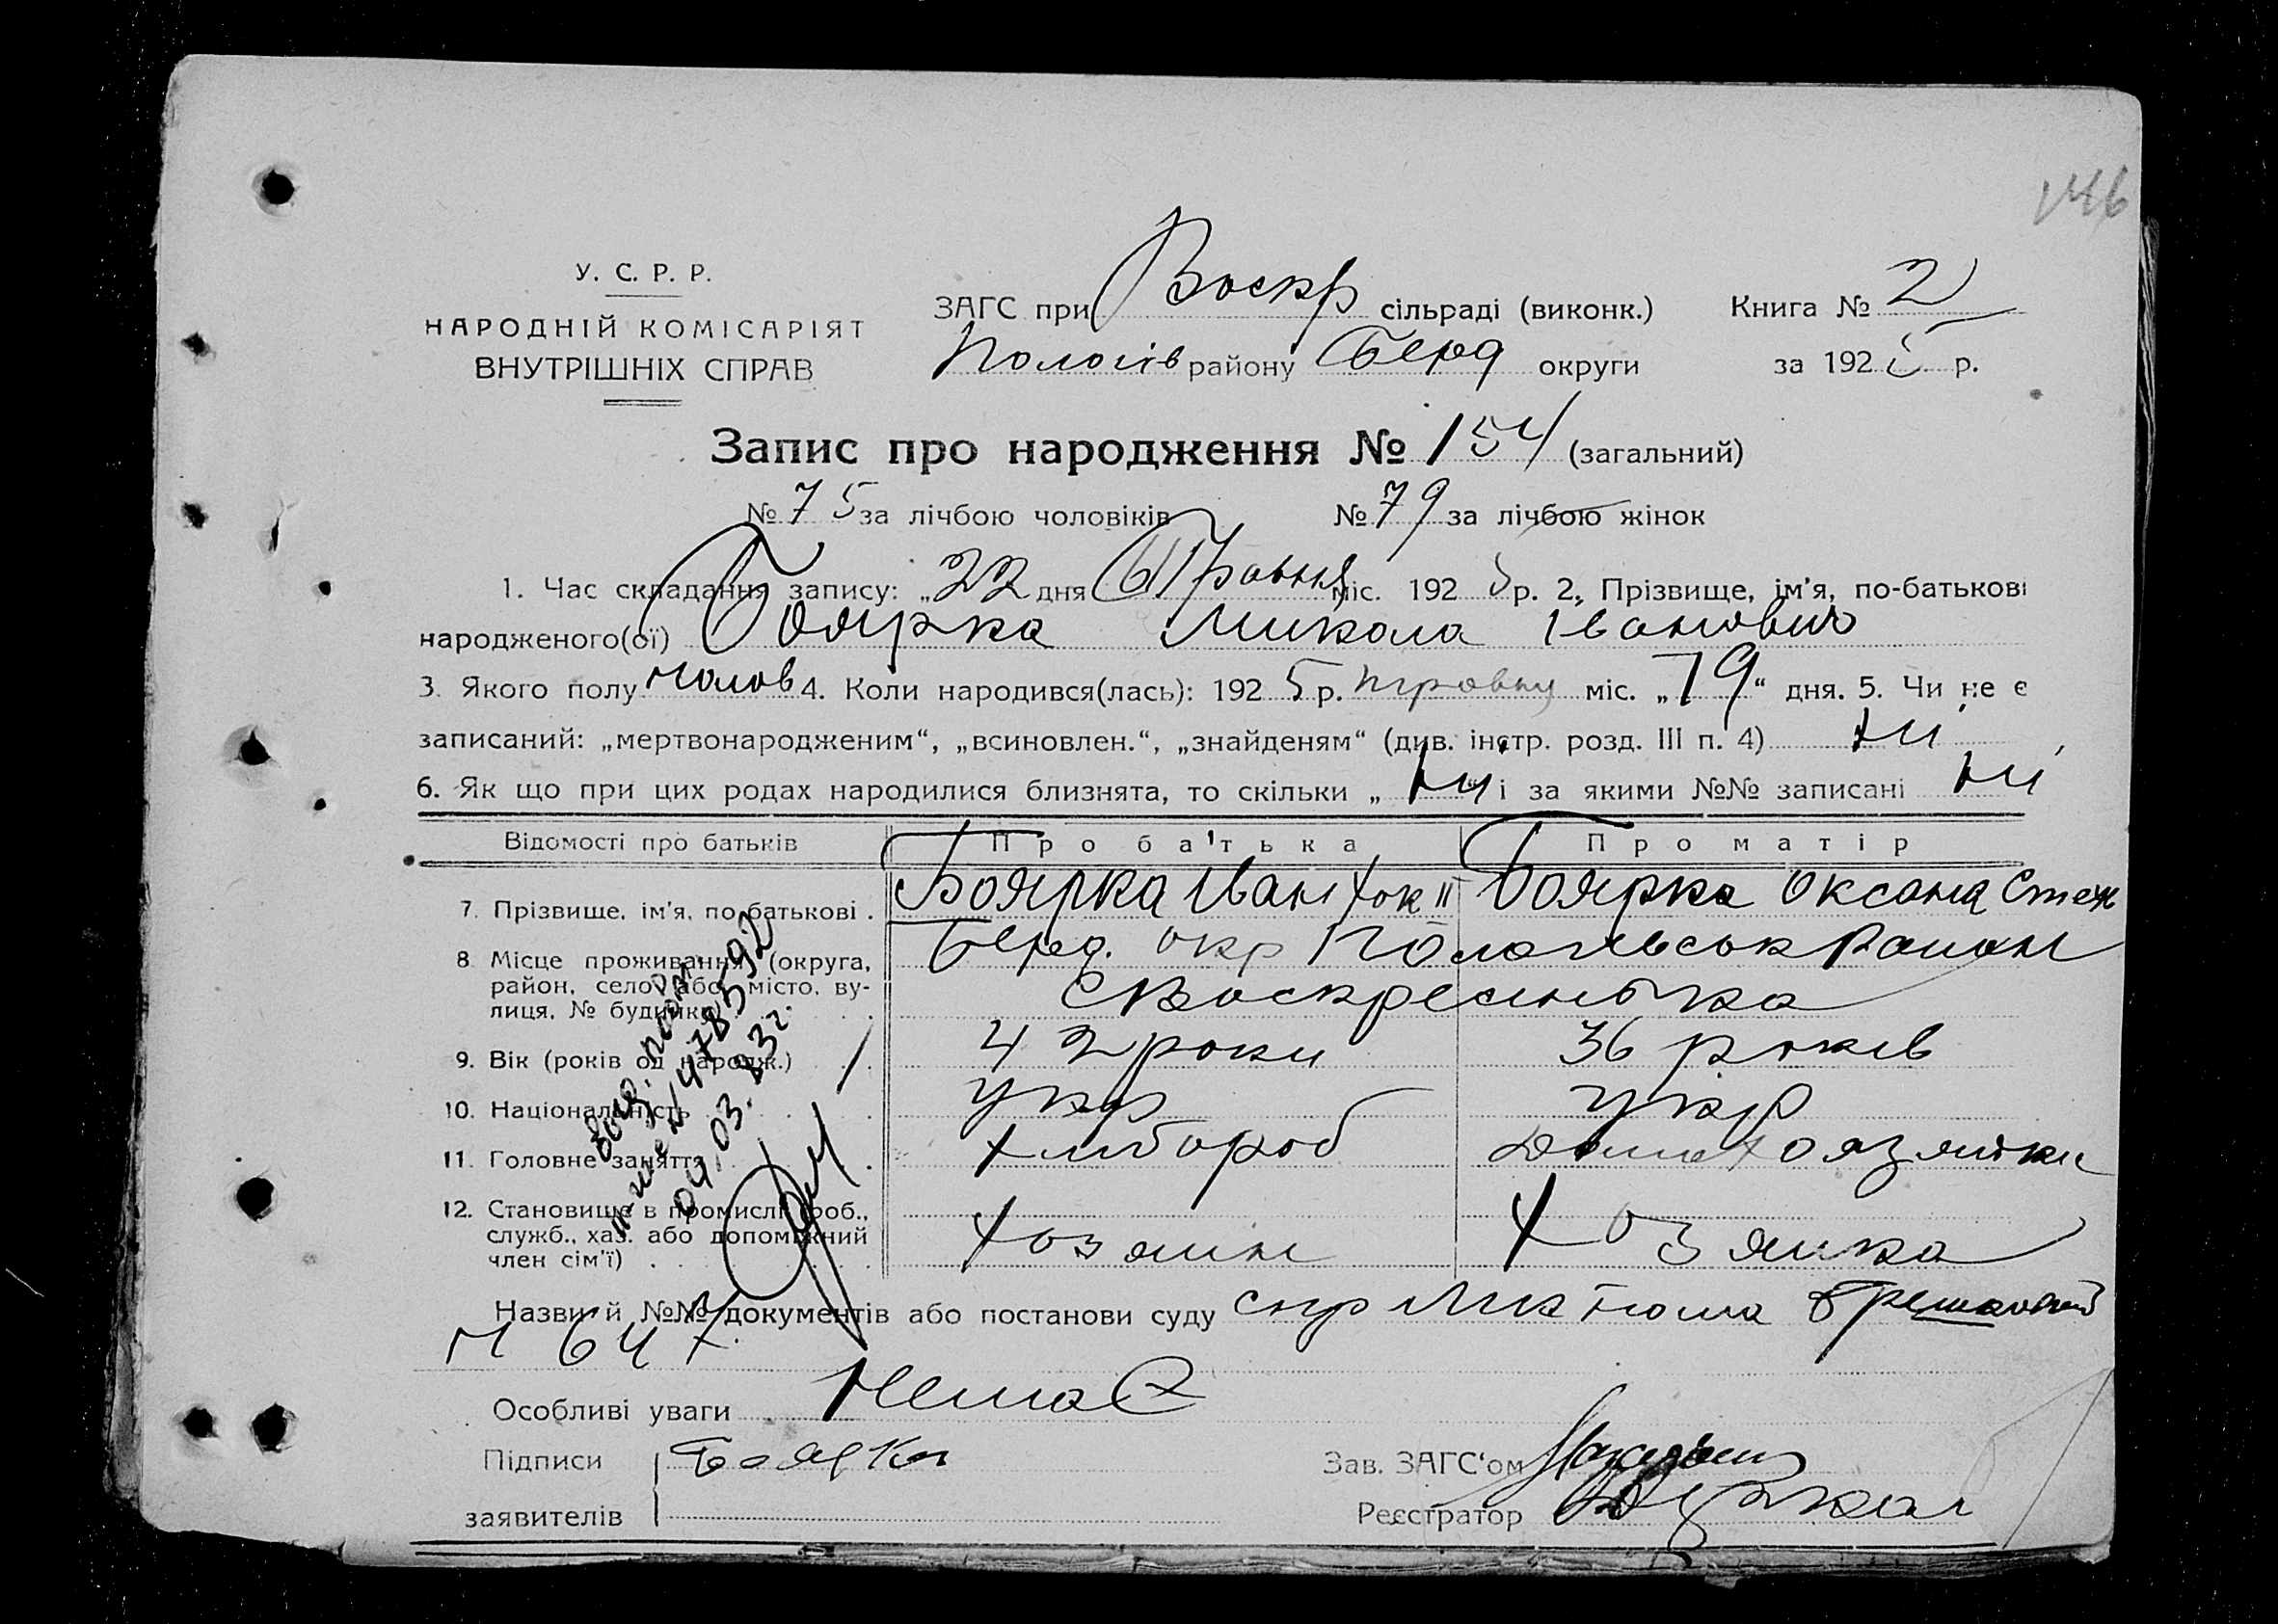 146
У. С. Р. Р.
НАРОДНІЙ КОМІСАРІЯТ
ВНУТРІШНІХ СПРАВ
ЗАГС при Воскр сільраді (виконк.) Книга № 2
Пологів району Берд округи за 1925 р.
Запис про народження № 154 (загальний)
№ 75 за лічбою чоловіків № 79 за лічбою жінок
1. Час складання запису: „22 дня Травня міс. 1925 р. 2. Прізвище, ім'я, по-батькові
народженого(ої) Боярка Микола Іванович
3. Якого полу чолов 4. Коли народився(лась): 1925 р. травня міс. „19“ дня. 5. Чи не є
записаний: „мертвонародженим“, „всиновлен.“, „знайденям“ (див. інстр. розд. III п. 4) ни
6. Як що при цих родах народилися близнята, то скільки „ ни “ і за якими №№ записані ни
Відомості про батьків Про батька Про матір
7. Прізвище, ім'я, по-батькові . Боярка Іван Боярка Оксана
8. Місце проживання (округа, Берд. окр Пологівськ Район
район, село або місто, ву- с Воскресинька
лиця, № будинку)
9. Вік (років од народж.) 42 роки 36 років
10. Національність укр укр
11. Головне заняття хлібороб
12. Становище в промислі (роб.,
служб., хаз. або допоміжний хозяин хозяика
член сім'ї)
04.03.83 г.
Назви й №№ документів або постанови суду
Ч 647
Особливі уваги Немае
Підписи Боярка Зав. ЗАГС'ом
заявителів Реєстратор